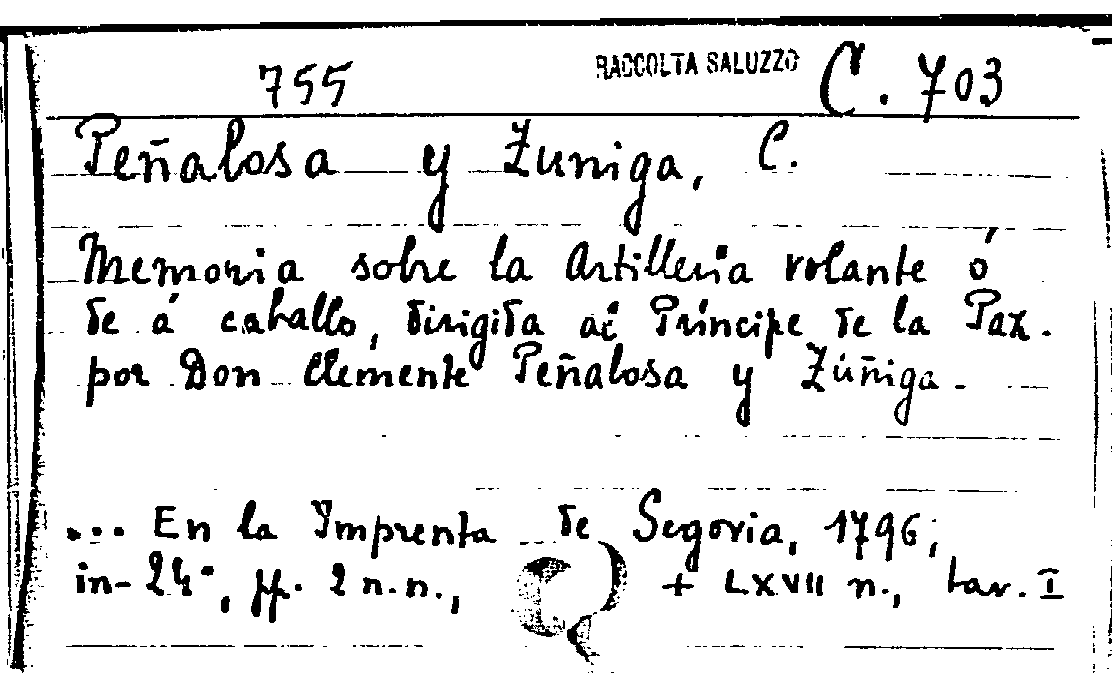 755 RACCOLTA SALUZZO C. 703
Peñalosa y Zuniga, C.
Memoria sobre la Artilleria volante ó
de á caballo, dirigida al Príncipe de la Pax.
por Don Clemente Peñalosa y Zúñiga.
... En la Imprenta de Segovia, 1796;
in-24°, pp. 2 n.n., + LXVII n., tav. I